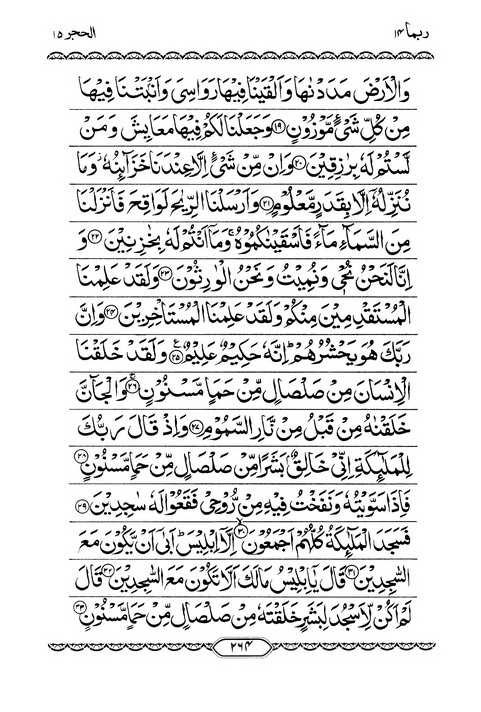 ربما ۱۴
الحجر ۱۵
وَالْاَرْضَ مَدَدْنٰهَا وَاَلْقَيْنَا فِيْهَا رَوَاسِىَ وَاَنْۢبَتْنَا فِيْهَا
مِنْ كُلِّ شَىْءٍ مَّوْزُوْنٍ ۱۹ وَجَعَلْنَا لَكُمْ فِيْهَا مَعَايِشَ وَمَنْ
لَّسْتُمْ لَهٗ بِرٰزِقِيْنَ ۲۰ وَاِنْ مِّنْ شَىْءٍ اِلَّا عِنْدَنَا خَزَآئِنُهٗ وَمَا
نُنَزِّلُهٗٓ اِلَّا بِقَدَرٍ مَّعْلُوْمٍ ۲۱ وَاَرْسَلْنَا الرِّيٰحَ لَوَاقِحَ فَاَنْزَلْنَا
مِنَ السَّمَآءِ مَآءً فَاَسْقَيْنٰكُمُوْهُ وَمَآ اَنْتُمْ لَهٗ بِخٰزِنِيْنَ ۲۲ وَ
اِنَّا لَنَحْنُ نُحْىٖ وَنُمِيْتُ وَنَحْنُ الْوٰرِثُوْنَ ۲۳ وَلَقَدْ عَلِمْنَا
الْمُسْتَقْدِمِيْنَ مِنْكُمْ وَلَقَدْ عَلِمْنَا الْمُسْتَاْخِرِيْنَ ۲۴ وَاِنَّ
رَبَّكَ هُوَ يَحْشُرُهُمْ اِنَّهٗ حَكِيْمٌ عَلِيْمٌ ۲۵ وَلَقَدْ خَلَقْنَا
الْاِنْسَانَ مِنْ صَلْصَالٍ مِّنْ حَمَاٍ مَّسْنُوْنٍ ۲۶ وَالْجَآنَّ
خَلَقْنٰهُ مِنْ قَبْلُ مِنْ نَّارِ السَّمُوْمِ ۲۷ وَاِذْ قَالَ رَبُّكَ
لِلْمَلٰٓئِكَةِ اِنِّىْ خَالِقٌۢ بَشَرًا مِّنْ صَلْصَالٍ مِّنْ حَمَاٍ مَّسْنُوْنٍ ۲۸
فَاِذَا سَوَّيْتُهٗ وَنَفَخْتُ فِيْهِ مِنْ رُّوْحِىْ فَقَعُوْا لَهٗ سٰجِدِيْنَ ۲۹
فَسَجَدَ الْمَلٰٓئِكَةُ كُلُّهُمْ اَجْمَعُوْنَ ۳۰ اِلَّآ اِبْلِيْسَ اَبٰىٓ اَنْ يَّكُوْنَ مَعَ
السّٰجِدِيْنَ ۳۱ قَالَ يٰٓاِبْلِيْسُ مَا لَكَ اَلَّا تَكُوْنَ مَعَ السّٰجِدِيْنَ ۳۲ قَالَ
لَمْ اَكُنْ لِّاَسْجُدَ لِبَشَرٍ خَلَقْتَهٗ مِنْ صَلْصَالٍ مِّنْ حَمَاٍ مَّسْنُوْنٍ ۳۳
۲۶۴